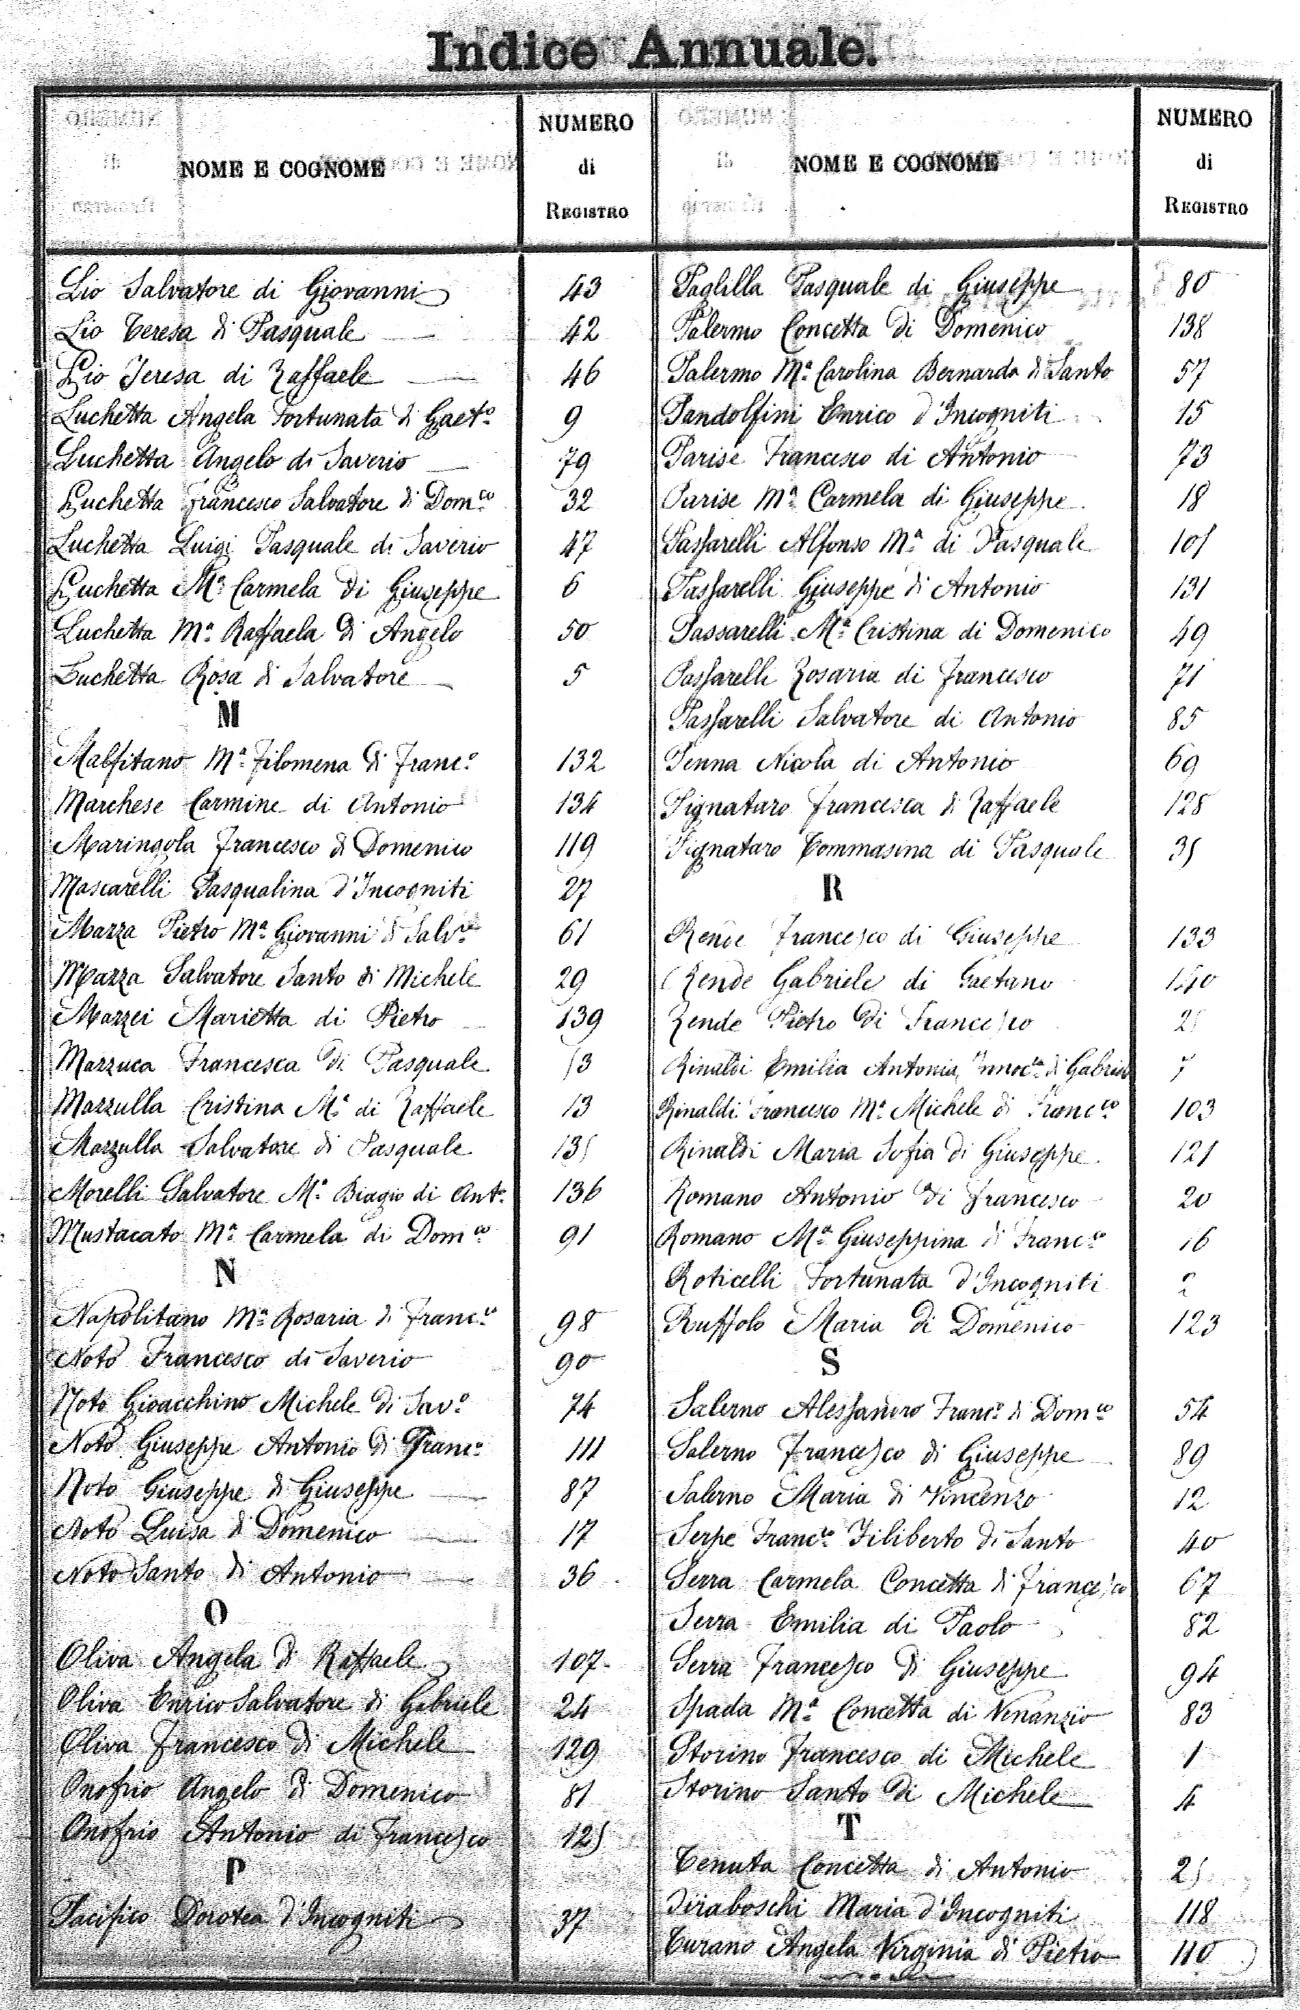 Indice Annuale.
NOME E COGNOME
NUMERO
di
REGISTRO
Lio Salvatore di Giovanni 43
Lio Teresa di Pasquale 42
Lio Teresa di Raffaele 46
Luchetta Angela Fortunata di Gaet.o 9
Luchetta Angelo di Saverio 79
Luchetta Francesco Salvatore di Dom.co 32
Luchetta Luigi Pasquale di Saverio 47
Luchetta M.a Carmela di Giuseppe 6
Luchetta M.a Raffaela di Angelo 50
Luchetta Rosa di Salvatore 5
M
Malfitano M.a Filomena di Franc.o 132
Marchese Carmine di Antonio 134
Maringola Francesco di Domenico 119
Mascarelli Pasqualina d'Incogniti 27
Mazza Pietro M.a Giovanni di Salv.re 61
Mazza Salvatore Santo di Michele 29
Mazzei Marietta di Pietro 139
Mazzuca Francesca di Pasquale 53
Mazzulla Cristina M.a di Raffaele 13
Mazzulla Salvatore di Pasquale 135
Morelli Salvatore M.a Biagio di Ant.o 136
Mustacato M.a Carmela di Dom.co 91
N
Napolitano M.a Rosaria di Franc.co 98
Noto Francesco di Saverio 90
Noto Gioacchino Michele di Sav.o 74
Noto Giuseppe Antonio di Franc.o 111
Noto Giuseppe di Giuseppe 87
Noto Luisa di Domenico 17
Noto Santo di Antonio 36
O
Oliva Angela di Raffaele 107
Oliva Enrico Salvatore di Gabriele 24
Oliva Francesco di Michele 129
Onofrio Angelo di Domenico 81
Onofrio Antonio di Francesco 125
P
Pacifico Dorotea d'Incogniti 37
NOME E COGNOME
NUMERO
di
REGISTRO
Paglilla Pasquale di Giuseppe 80
Palermo Concetta di Domenico 138
Palermo M.a Carolina Bernarda di Santo 57
Pandolfini Enrico d'Incogniti 15
Parise Francesco di Antonio 73
Parise M.a Carmela di Giuseppe 18
Passarelli Alfonso M.a di Pasquale 105
Passarelli Giuseppe di Antonio 131
Passarelli M.a Cristina di Domenico 49
Passarelli Rosaria di Francesco 71
Passarelli Salvatore di Antonio 85
Penna Nicola di Antonio 69
Pignataro Francesca di Raffaele 128
Pignataro Tommasina di Pasquale 35
R
Rende Francesco di Giuseppe 133
Rende Gabriele di Gaetano 140
Rende Pietro di Francesco
Rinaldi Emilia Antonia Innoc.a di Gabriele 7
Rinaldi Francesco M.a Michele di Franc.co 103
Rinaldi Maria Sofia di Giuseppe 121
Romano Antonio di Francesco 20
Romano M.a Giuseppina di Franc.o 16
Roticelli Fortunata d'Incogniti 2
Ruffolo Maria di Domenico 123
S
Salerno Alessandro Franc.o di Dom.co 54
Salerno Francesco di Giuseppe 89
Salerno Maria di Vincenzo 12
Serpe Franc.co Filiberto di Santo 40
Serra Carmela Concetta di Francesco 67
Serra Emilia di Paolo 82
Serra Francesco di Giuseppe 94
Spada M.a Concetta di Venanzio 83
Storino Francesco di Michele 1
Storino Santo di Michele 4
T
Tenuta Concetta di Antonio 25
Tiraboschi Maria d'Incogniti 118
Turano Angela Virginia di Pietro 110